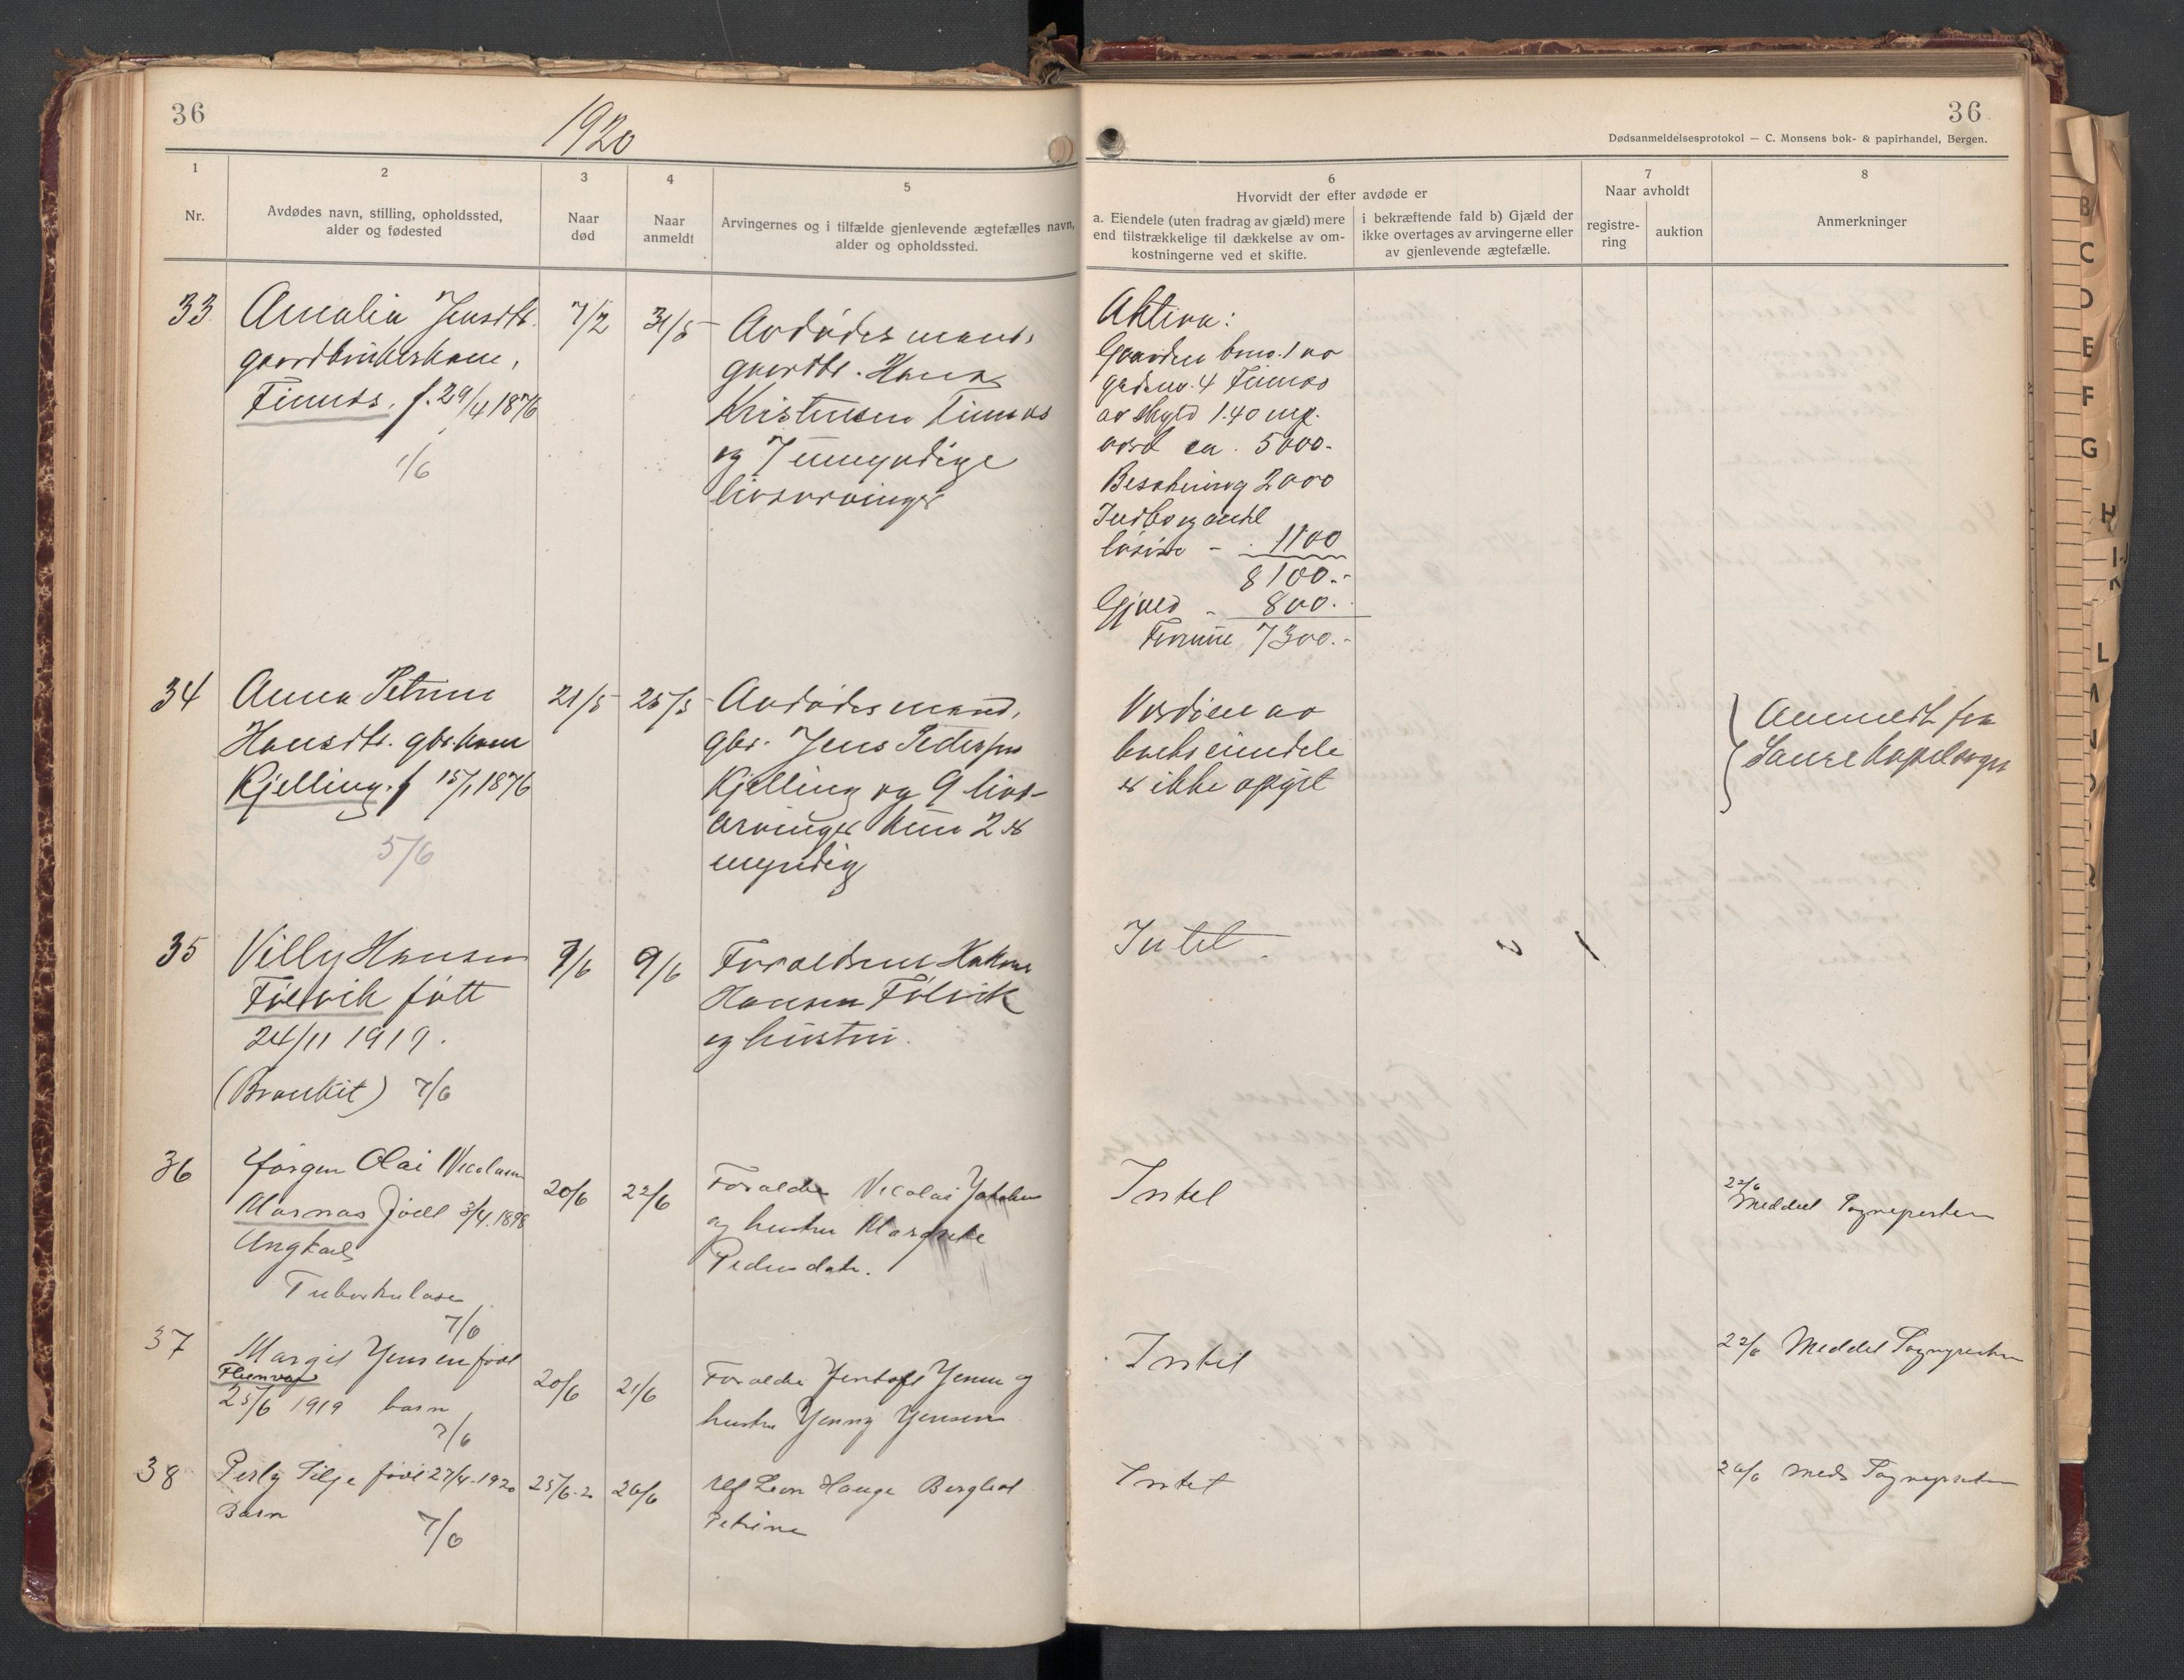 36
1920
36
Dødsanmeldelsesprotokol — C. Monsens bok- & papirhandel, Bergen.
1
Nr.
2
Avdødes navn, stilling, opholdssted,
alder og fødested
3
Naar
død
4
Naar
anmeldt
5
Arvingernes og i tilfælde gjenlevende ægtefælles navn,
alder og opholdssted.
6
Hvorvidt der efter avdøde er
a. Eiendele (uten fradrag av gjæld) mere
end tilstrækkelige til dækkelse av om-
kostningerne ved et skifte.
i bekræftende fald b) Gjæld der
ikke overtages av arvingerne eller
av gjenlevende ægtefælle.
7
Naar avholdt
registre-
ring
auktion
8
Anmerkninger
33
Amalia Jensdtr.
gaardbrukerkone,
f. 29/4 1876
1/6
7/2
31/5
Avdødes mand,
gaardbr. Hans
Kristensen
og 7 umyndige
livsarvinger
Aktiva:
Gaarden bno. 1 av
gardsno. 4
av skyld 1.40 mrk.
værd ca. 5000.-
Besætning 2000
Indbo og andet
løsøre - 1100
8100.-
Gjæld - 800.-
Formue 7300.-
34
Anna Petrine
Hansdtr. gbr.kone
Kjelling. f 15/1 1876
5/6
21/5
25/5
Avdødes mand,
gbr. Jens Pedersen
Kjelling og 9 livs-
arvinger kun 2 er
myndig
Værdien av
boets eiendele
er ikke opgjort
Anmeldt fra
35
Villy Hansen
Følvik født
24/11 1919.
(Bronkit) 7/6
7/6
9/6
Forældrene Hakon
Hansen Følvik
og hustru.
Intet
36
Jørgen Olai Nicolaisen
Marnas født 3/4.1898
Ungkarl
Tuberkulose
7/6
20/6
22/6
Forældre Nicolai Jakobsen
og hustru Margrete
Pedersdatr.
Intet
22/6
Meddel Sognepresten
37
Margit Jensen født
25/6 1919 barn
7/6
20/6
21/6
Forældre Jentoft Jensen og
hustru Jenny Jensen
Intet
22/6 Meddel Sognepresten
38
Perly Silje født 27/4-1920
Barn
7/6
25/6-20
26/6
Leon Hauge Bergliot
Petrine
Intet
26/6 Medd Sognepresten
B
C
D
E
F
G
H
L